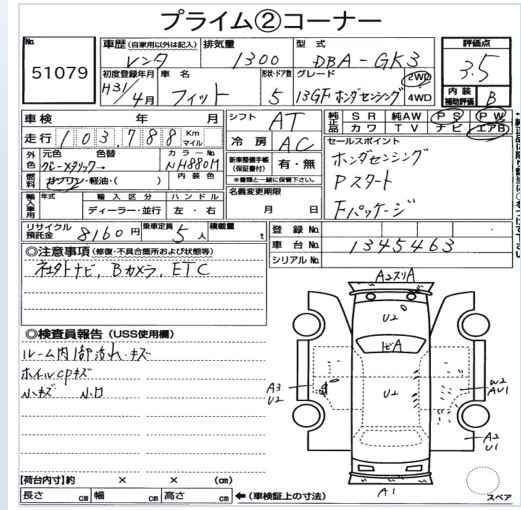 プライム②コーナー
No. 51079
車歴 (自家用以外は記入) レンタ
排気量 1300
型式 DBA-GK3
評価点 3.5
初度登録年月 H31/4月
車名 フィット
形状・ドア数 5
グレード 13GF ホンダセンシング
2WD
4WD
内装補助評価 B
車検 年 月
シフト AT
純正品 SR 純AW PS PW
カワ TV ナビ エアB
走行 103,788 Km マイル
冷房 AC
セールスポイント
ホンダセンシング
Pスタート
Fパッケージ
外色 元色 色替 グレーメタリック→
カラーNo. NH880M
新車整備手帳(保証書付) 有・無
※書類と一緒に保管下さい。
燃料 ガソリン・軽油・( )
内装色
名義変更期限
月 日
輸入車用 年式 輸入区分 ハンドル
ディーラー・並行 左・右
リサイクル預託金 8160円
乗車定員 5人
積載量 t
登録No.
車台No. 1345463
シリアルNo.
◎注意事項 (修復・不具合箇所および状態等)
ネェタトナビ, Bカメラ, ETC
◎検査員報告 (USS使用欄)
ルーム内1部汚れ・キズ
ホイルcpキズ
小キズ 小凹
A2スリA
U2
トビA
U2
A3
U2
W2
AU1
A2
U1
A1
スペア
【荷台内寸】約 × × (cm)
長さ cm 幅 cm 高さ cm ←(車検証上の寸法)